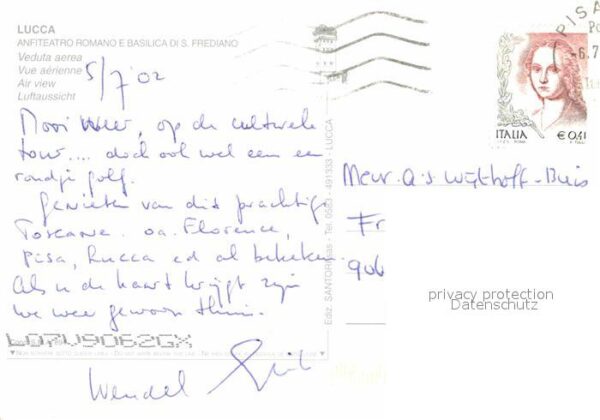 LUCCA
ANFITEATRO ROMANO E BASILICA DI S. FREDIANO
Veduta aerea
Vue aérienne
Air view
Luftaussicht
5/7 02
Mooi weer, op de culturele
tour.... doch ook wel een een
rondje golf.
Genieten van dit prachtige
Toscane. oa. Florence,
Pisa, Lucca ed al bekeken.
Als u de kaart krijgt zijn
we weer gewoon thuis.
Wendel
L07V9062GX
Tel. 0583 - 491333 - LUCCA
PISA
-6.7
ITALIA
€ 0,41
Mevr. A.S.
Fr
906
privacy protection
Datenschutz